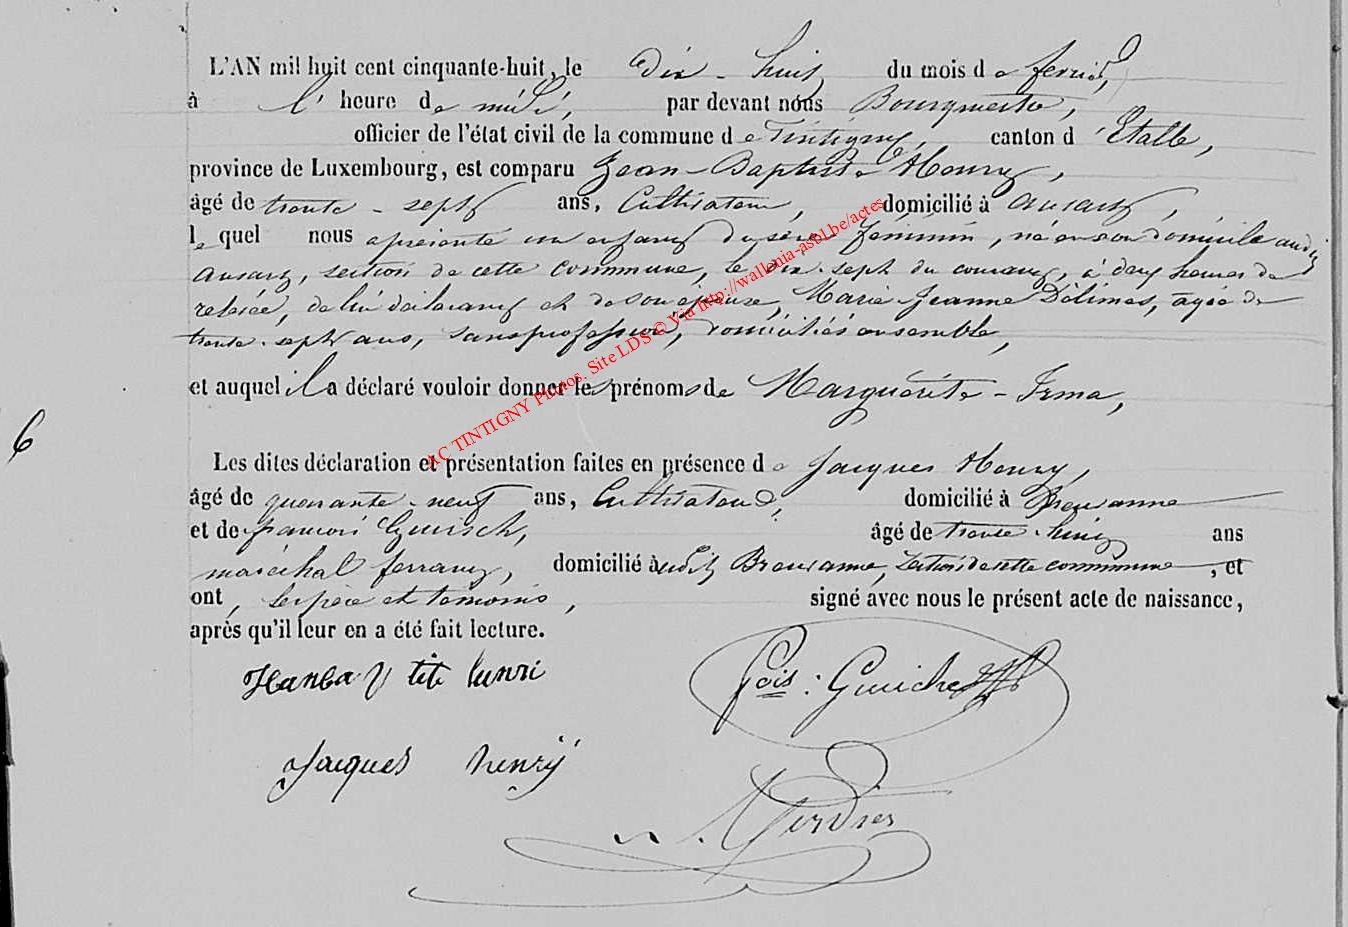 L'AN mil huit cent cinquante-huit, le dix-huit du mois de fevrier,
à l'heure de midi, par devant nous Bourgmestre,
officier de l'état civil de la commune de Tintigny, canton d'Etalle,
province de Luxembourg, est comparu Jean-Baptiste Henry,
âgé de trente-sept ans, Cultivateur, domicilié à Ansart,
lequel nous a présenté un enfant du sexe féminin, né en son domicile audit
Ansart, section de cette commune, le dix-sept du courant, à deux heures de
relevée, de lui déclarant et de son épouse, Marie Jeanne Délimes, âgée de
trente-sept ans, sans profession, domiciliés ensemble,
et auquel il a déclaré vouloir donner les prénoms de Marguérite-Irma,
6
Les dites déclaration et présentation faites en présence de Jacques Henry,
âgé de quarante-neuf ans, Cultivateur, domicilié à Breuvanne
et de françois Guirsch, âgé de trente-huit ans
maréchal ferrant, domicilié audit Breuvanne, section de cette commune, et
ont, le père et témoins, signé avec nous le présent acte de naissance,
après qu'il leur en a été fait lecture.
Fois: Guirche
Jacques henrÿ
AC TINTIGNY Photos. Site LDS © Via http://wallonia-asbl.be/actes